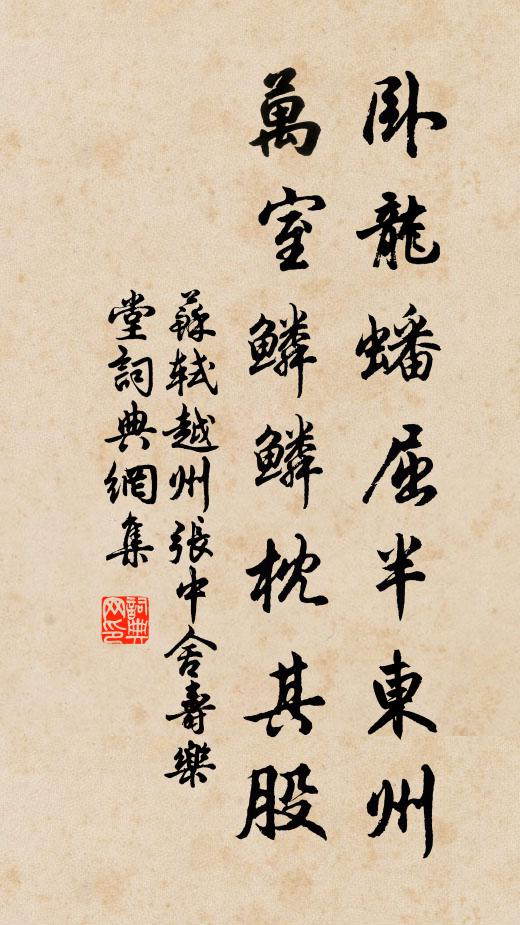 臥龍蟠屈半東州
萬室鱗鱗枕其股
蘇軾越州張中舍壽樂
堂詞典網集
詞典
网印